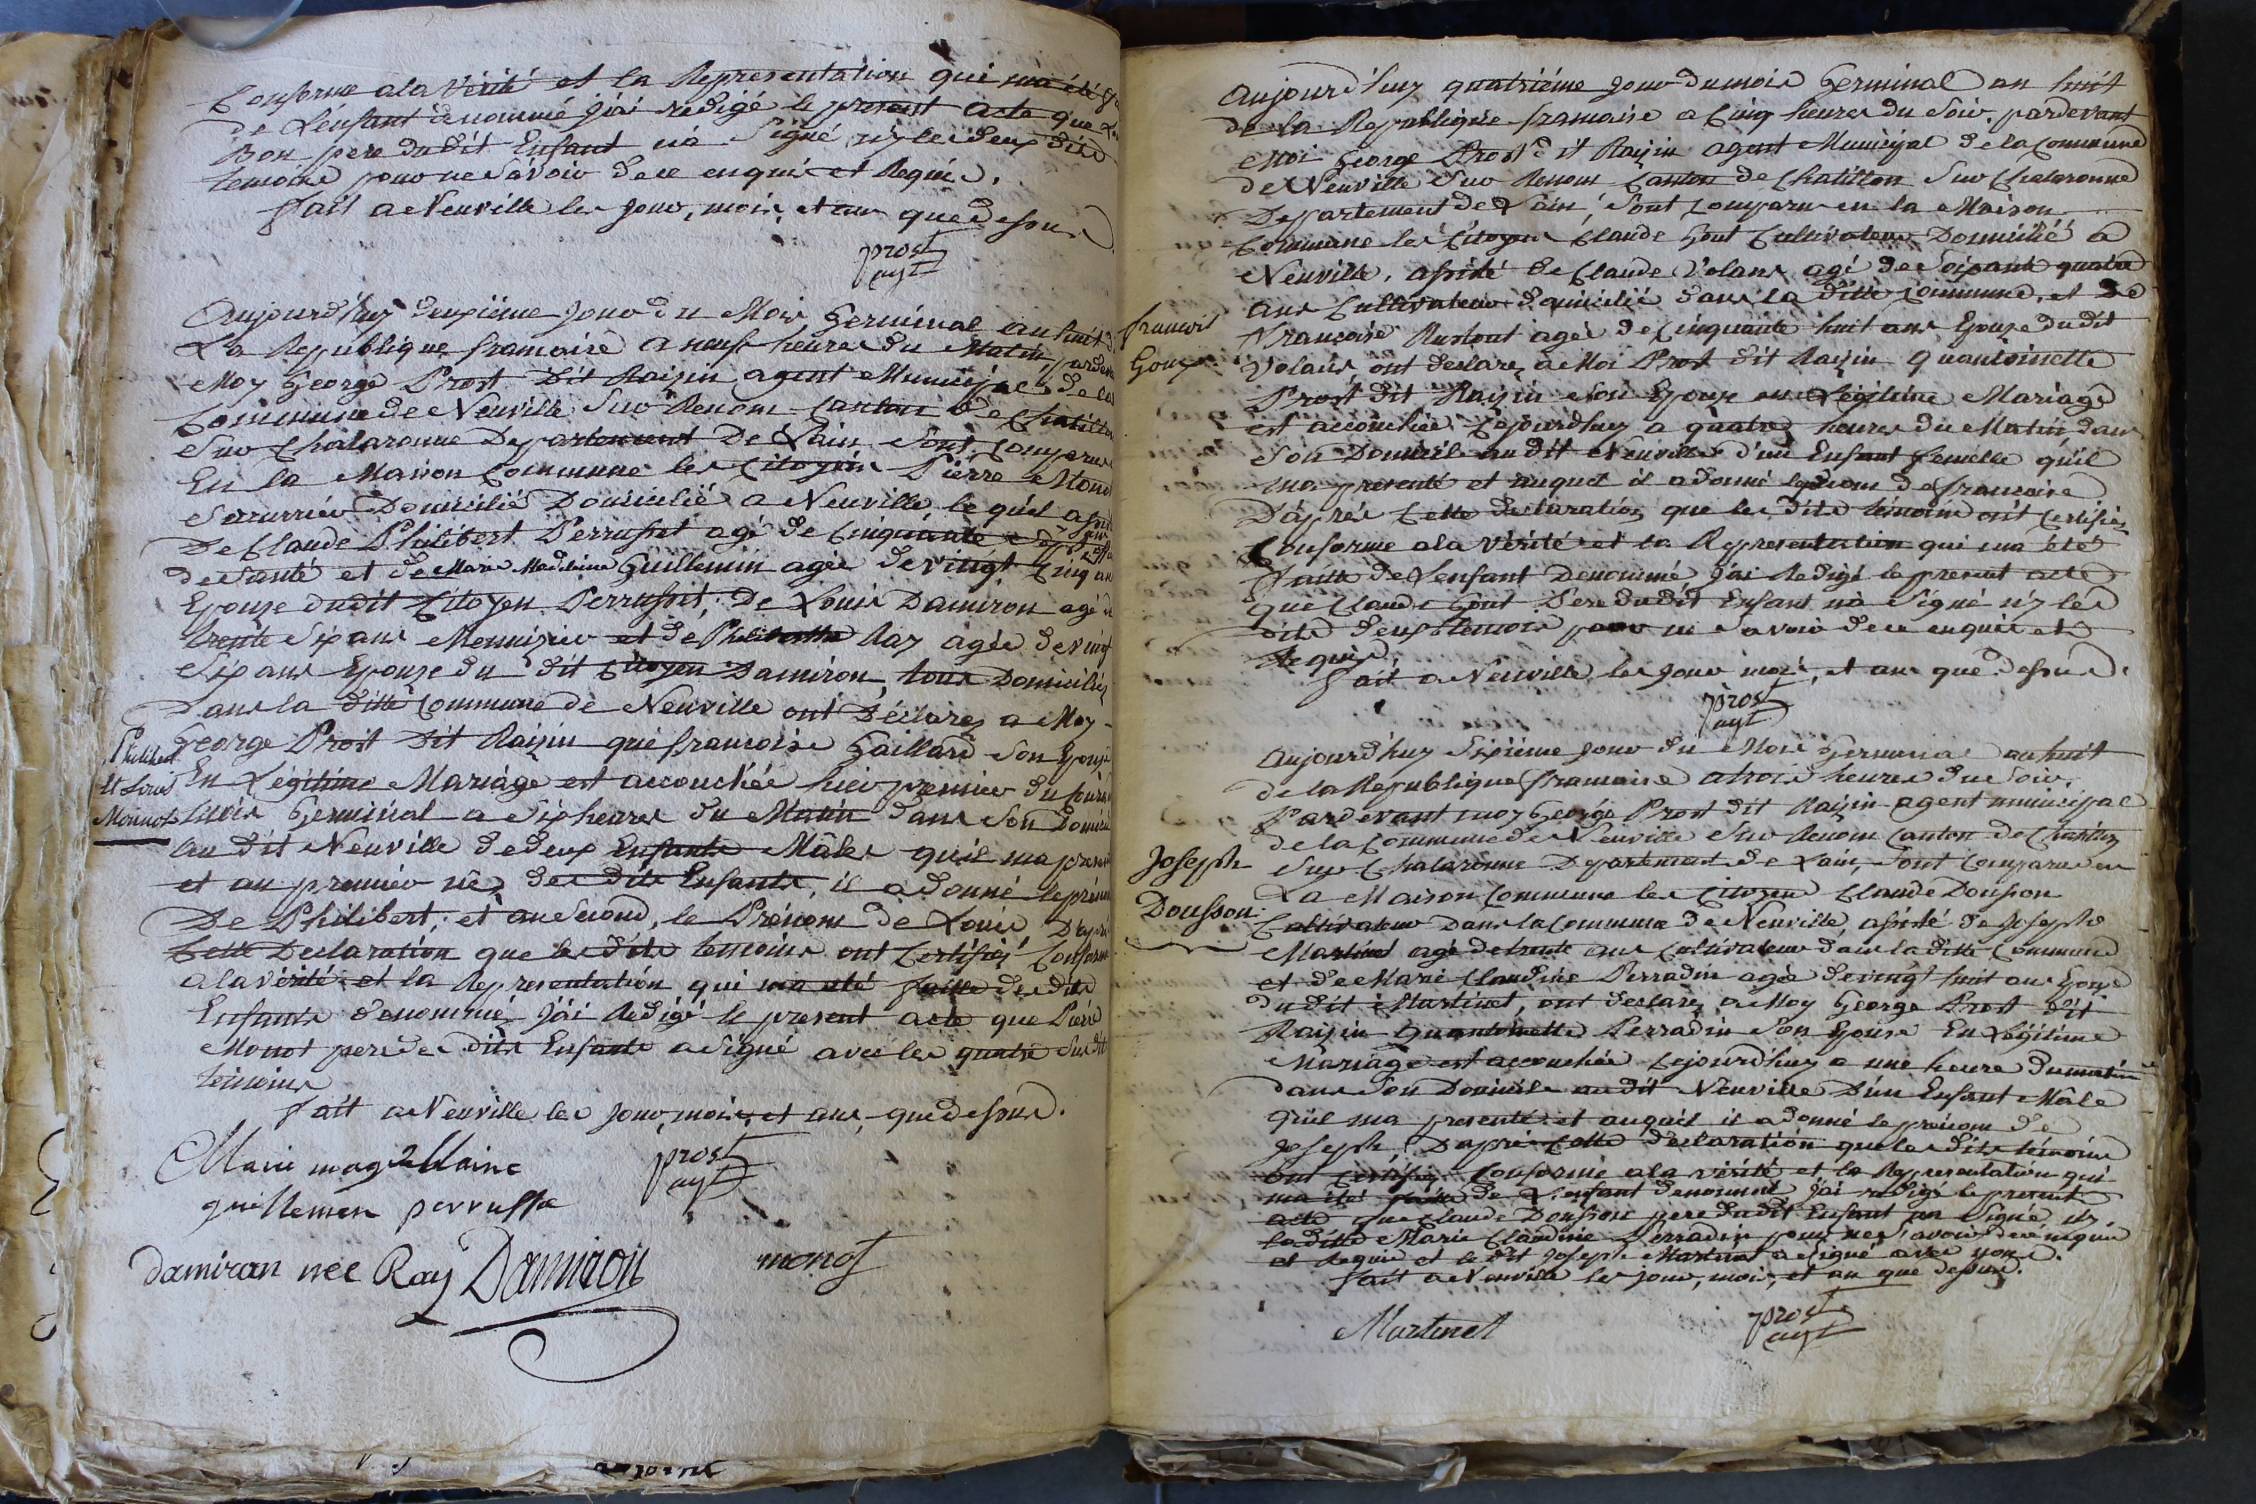 Conforme a la Vérité et la Representation qui m'a été
de L'enfant denommé j'ai redigé le present acte que
Bon pere dudit Enfant na Signé, ny les deux dits
temoins pour ne Sávoir de ce enquis et Requis.
fait a Neuville les jour, mois, et an que dessus
prost
agt
Aujourd'huy deuxième jour du Mois Germinal an huit de
La Republique francoise a neuf heures du Matin, pardevant
Moy George Prost Dit Raisin agent Municipal de la
Commune de Neuville Sur Renom Canton de Chatillon
Sur Chalaronne Departement De Lain Sont Comparus
En la Maison Commune les Citoyens Pierre Monot
Serrurrier Domicilié Domicilié a Neuville le quel assisté
De Claude Philibert Perrusset agé de Cinquante
de Santé et de Marie Madelaine Guillemin agée de vingt Cinq ans
Epouse dudit Citoyen Perrusset; De Louis Damiron agé de
trente Six ans Menuizier et de Philiberthe Ray agée de vingt
Six ans Epouze du dit Citoyen Damiron, tous Domiciliés
Dans la ditte Commune de Neuville ont Déclarez a Moy
George Prost Dit Raizin que francoise Gaillard Son Epouze
En Légitime Mariage est accouchée hier premier du Courant
Philibert
et Louis
Monnot
mois Germinal a Six heures du Matin dans Son Domicile
au dit Neuville de deux Enfants Mâles qu'il m'a presenté
et au premier nés des dits Enfants, il a donné le prénom
De Philibert; et au Second, le Prénom de Louis D'après
Cette Declaration que les dits temoins ont Certifiés Conforme
a la vérité et la Representation qui m'a été faitte des dits
Enfants denommé, J'ai Redigé le present acte que Pierre
Monot pere des dits Enfants a Signé avec les quatre Susdits
temoins
fait a Neuville les jour, mois, et an, que dessus.
Marie magdellaine
guillemen perrusse
prost
agt
damiran née Ray Damiron
monot
Aujourd'huy quatrième jour du mois Germinal an huit
de la Republique francoise a Cinq heures du Soir. pardevant
Moi George Prost dit Raizin agent Municipal de la Commune
de Neuville Sur Renom Canton de Chatillon Sur Chalaronne
Departement de L'ain, Sont comparus en la Maison
Commune les Citoyens Claude Gout Cultivateur Domicilié a
Neuville, assisté de Claude Volans agé de Soixante quatre
ans Cultivateur domicilié dans la ditte commune, et de
francois
Goux
Francoise agée de Cinquante huit ans Epouze dudit
Volans ont declarez a Moi Prost dit Raizin qu'antoinette
Prost dit Raizin Son Epouze en Légitime Mariage
est accouchée Cejourd'huy a quatre heures du Matin dans
Son Domicile audit Neuville d'un Enfant femelle qu'il
ma presenté et auquel il a donné le prénom de francoise
D'après Cette declaration que les dits temoins ont Certifiés
Conforme a la Vérité et la Representation qui ma été
Faitte de L'enfant Denommé, J'ai Redigé le present acte
que Claude Gout Pere dudit Enfant na Signé n'y les
dits deux temoins pour ne Savoir de ce enquis et
Requis
fait a Neuville les jour mois, et an que dessus.
prost
agt
Aujourd'huy Sixième jour du Mois Germinal an huit
de la Republique francoise a trois heures du Soir,
Pardevant moy George Prost dit Raizin agent municipal
de la Commune de Neuville Sur Renom Canton de Chatillon
Joseph
Dousson
Sur Chalaronne Departement de Lain, Sont comparus en
La Maison Commune les Citoyens Claude Dousson
Cultivateur Dans la Commune de Neuville, assisté de Joseph
Martinet agé de trente ans Cultivateur dans la ditte Commune
et de Marie Claudine Perradin agée de vingt huit ans Epouze
dudit Martinet, ont declarez a Moy George Prost dit
Raizin qu'antoinette Perradin Son Epouse En Légitime
Mariage est accouchée Cejourd'huy a une heure du matin
dans Son Domicile au dit Neuville D'un Enfant Mâle
qu'il ma presenté et auquel il a donné le prénom de
Joseph, D'après Cette declaration que les dits temoins
ont Certifiés Conforme a la vérité et la Representation qui
ma été faitte de L'enfant denommé j'ai redigé le present
acte que Claude Dousson pere dudit Enfant na Signé ny
la ditte Marie Claudine Perradin pour ne Savoir de ce enquis
et Requis et le dit Joseph Martinet a Signé avec nous.
fait a Neuville les jour, mois, et an que dessus.
Martinet
prost
agt